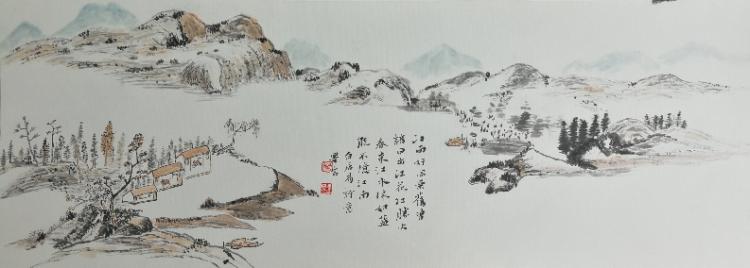 江南好风景舊曾
諳日出江花红勝火
春來江水绿如蓝
能不憶江南
白居易诗意